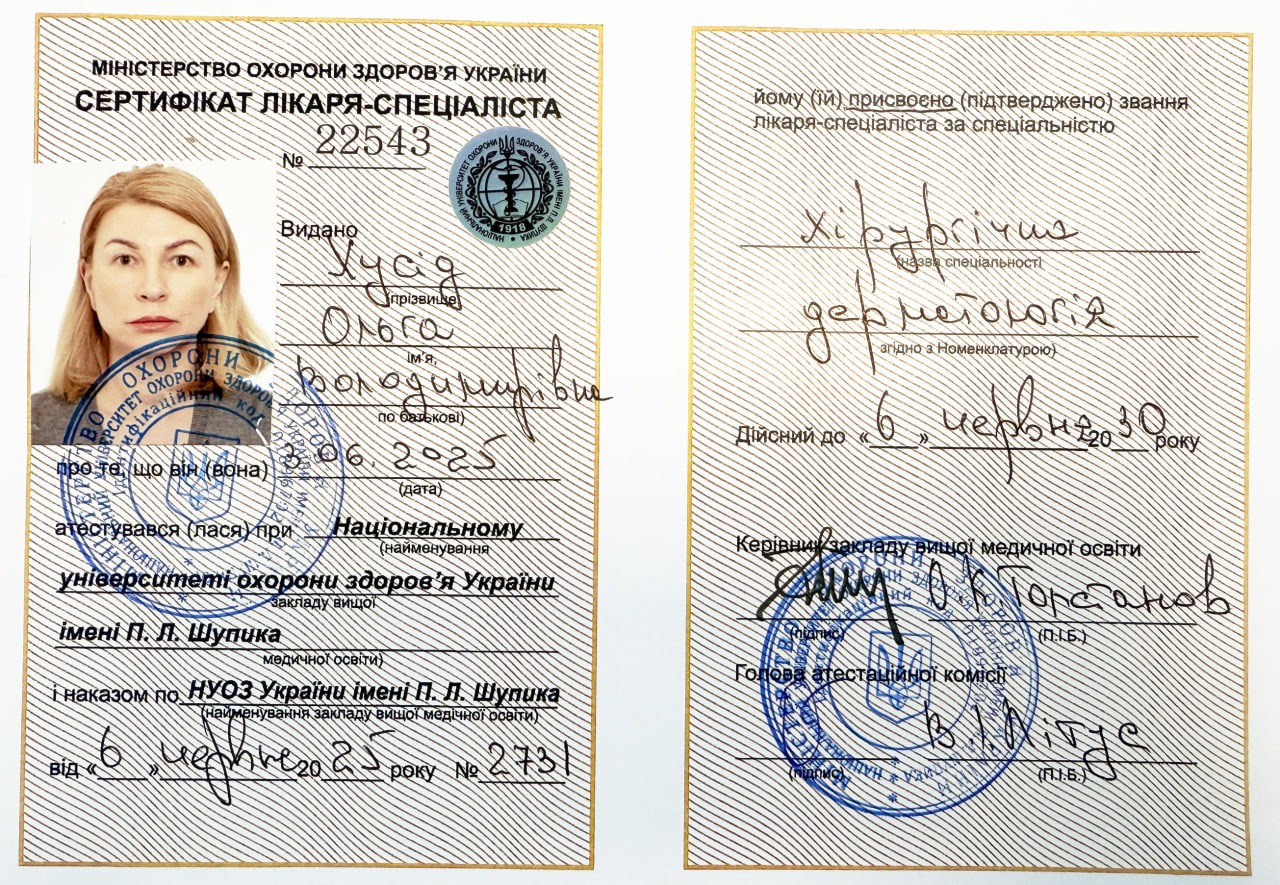 МІНІСТЕРСТВО ОХОРОНИ ЗДОРОВ'Я УКРАЇНИ
СЕРТИФІКАТ ЛІКАРЯ-СПЕЦІАЛІСТА
№ 22543
НАЦІОНАЛЬНИЙ УНІВЕРСИТЕТ ОХОРОНИ ЗДОРОВ'Я УКРАЇНИ ІМЕНІ П.Л. ШУПИКА
1918
Видано
Хусід
(прізвище
Ольга
ім'я,
Володимирівна
по батькові)
про те, що він (вона) 3.06.2025
(дата)
атестувався (лася) при Національному
(найменування
університеті охорони здоров'я України
закладу вищої
імені П. Л. Шупика
медичної освіти)
і наказом по НУОЗ України імені П. Л. Шупика
(найменування закладу вищої медічної освіти)
від «6» червня 2025 року № 2731
йому (їй) присвоєно (підтверджено) звання
лікаря-спеціаліста за спеціальністю
Хірургічна
(назва спеціальності
дерматологія
згідно з Номенклатурою)
Дійсний до «6» червня 2030 року
Керівник закладу вищої медичної освіти
О.К. Толстанов
(підпис) (П.І.Б.)
Голова атестаційної комісії
В.І. Літус
(підпис) (П.І.Б.)